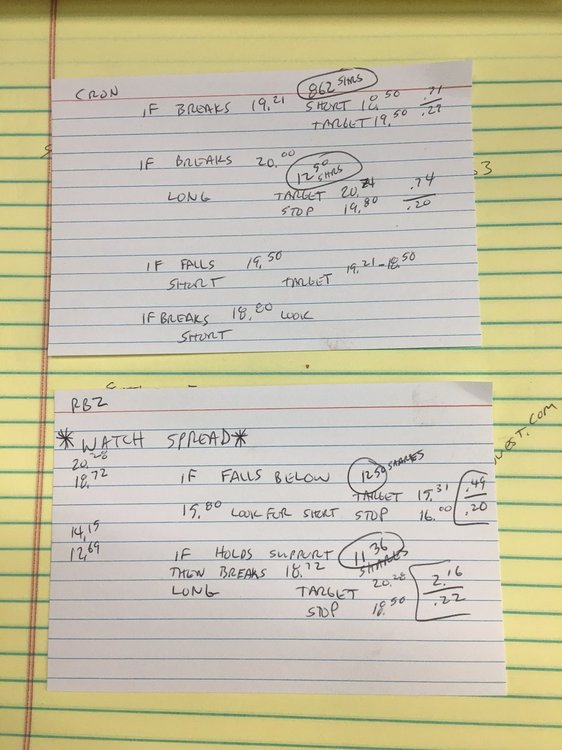 CRON
862 SHRS
IF BREAKS 19.21 SHORT 18.50 .71
TARGET 19.50 .29
IF BREAKS 20.00
1250 SHRS
LONG TARGET 20.74 .74
STOP 19.80 .20
IF FALLS 19.50
SHORT TARGET 19.21-18.50
IF BREAKS 18.80 LOOK
SHORT
RBZ
*WATCH SPREAD*
20.28
18.72
IF FALLS BELOW 1250 SHARES
TARGET 15.31 .49
15.80 LOOK FOR SHORT STOP 16.00 .20
14.15
12.69
IF HOLDS SUPPORT 1136 SHARES
THEN BREAKS 18.72
LONG TARGET 20.28 2.16
STOP 18.50 .22